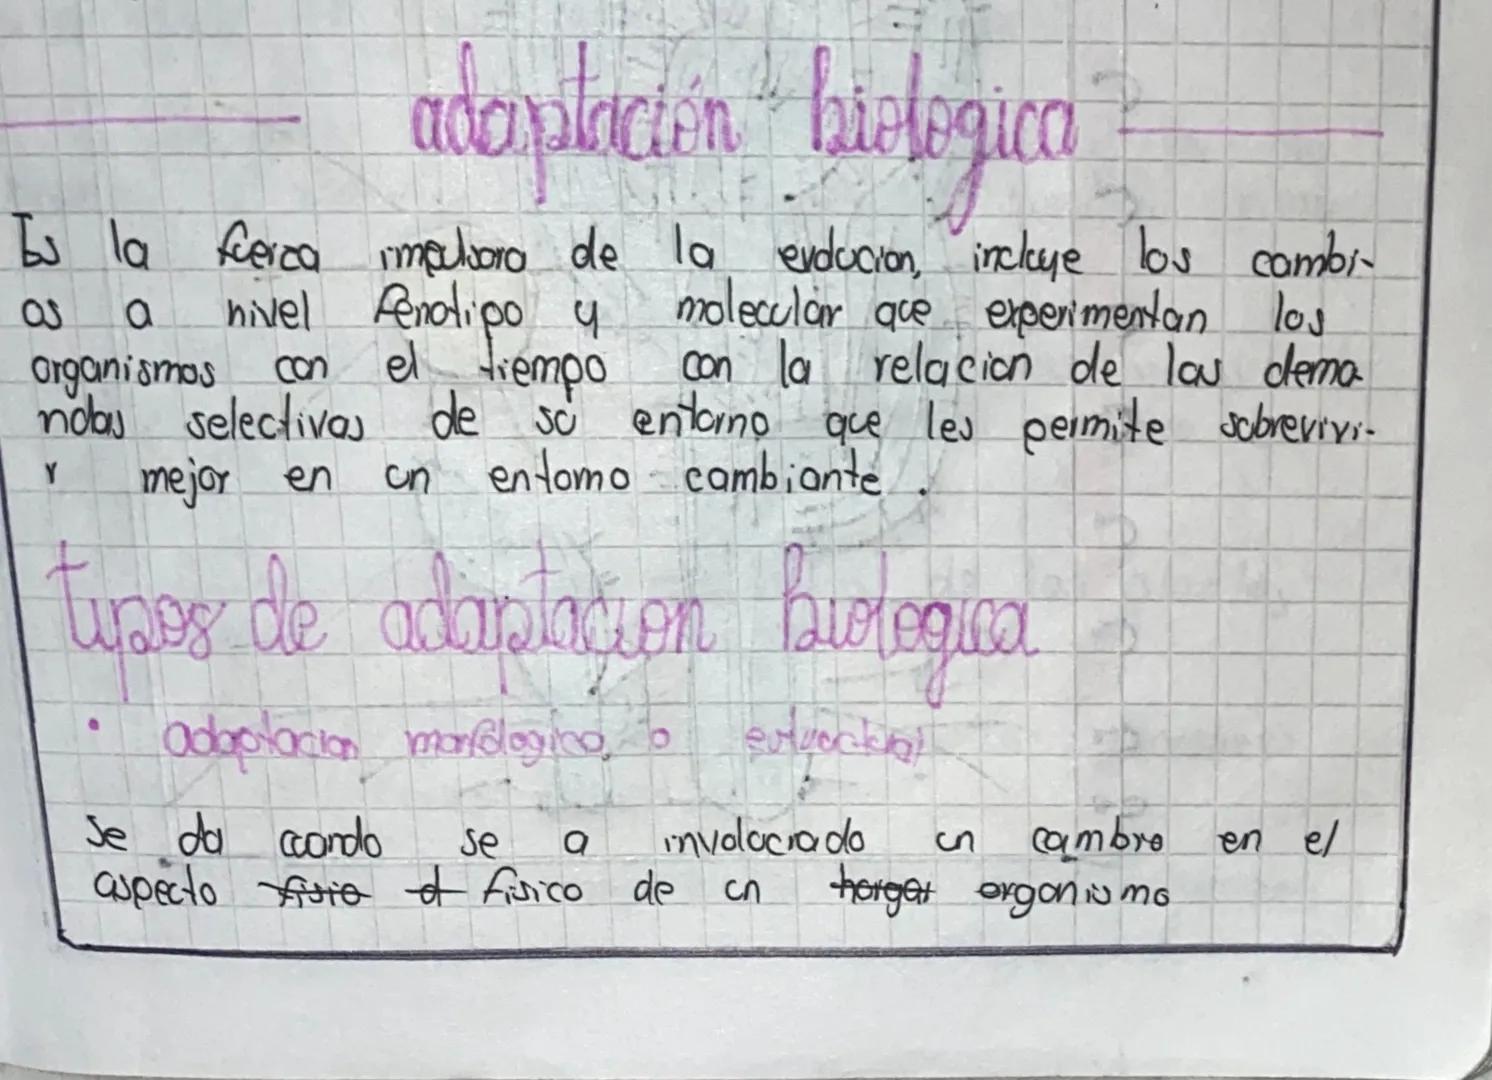 adaptación biologica
Es la fuerza impulsora de la evolucion, incluye los cambi-
os a nivel fenotipo y molecular que experimentan los
organismos con el tiempo con la relacion de las dema
ndas selectivas de su entorno que les permite sobrevivi-
r mejor en un entorno cambiante.
tipos de adaptacion biologica
• adaptacion morfologica o
se da cuando se a involucrado un cambio en el
aspecto fisico de un organismo